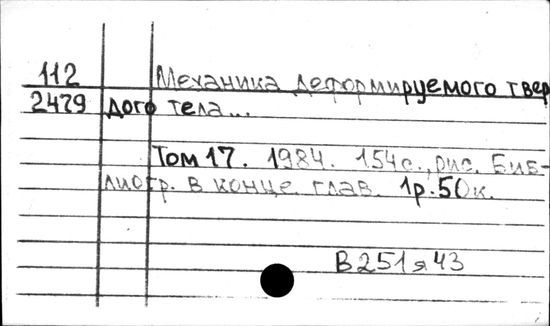 112 Механика деформируемого твер
2479 дого тела...
Том 17. 1984. 154с., рис. Биб-
лиогр. в конце глав. 1р.50к.
В251я43